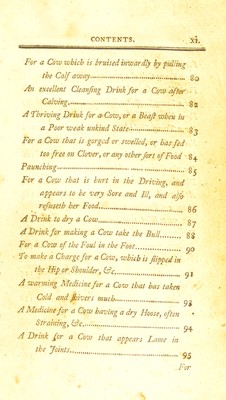 CONTENTS. xi.
For a Cow which is bruised inwardly by pulling
the Calf away 80
An excellent Cleansing Drink for a Cow after
Calving 82
A Thriving Drink for a Cow, or a Beast when in
a Poor weak unkind State 83
For a Cow that is gorged or swelled, or has fed
too free on Clover, or any other sort of Food 84
Paunching 85
For a Cow that is hurt in the Driving, and
appears to be very Sore and Ill, and also
refuseth her Food 86
A Drink to dry a Cow 87
A Drink for making a Cow take the Bull 88
For a Cow of the Foul in the Foot 90
To make a Charge for a Cow, which is slipped in
the Hip or Shoulder, &c. 91
A warming Medicine for a Cow that has taken
Cold and shivers much 93
A Medicine for a Cow having a dry Hoose, often
Straining, &c. 94
A Drink for a Cow that appears Lame in
the Joints 95
For